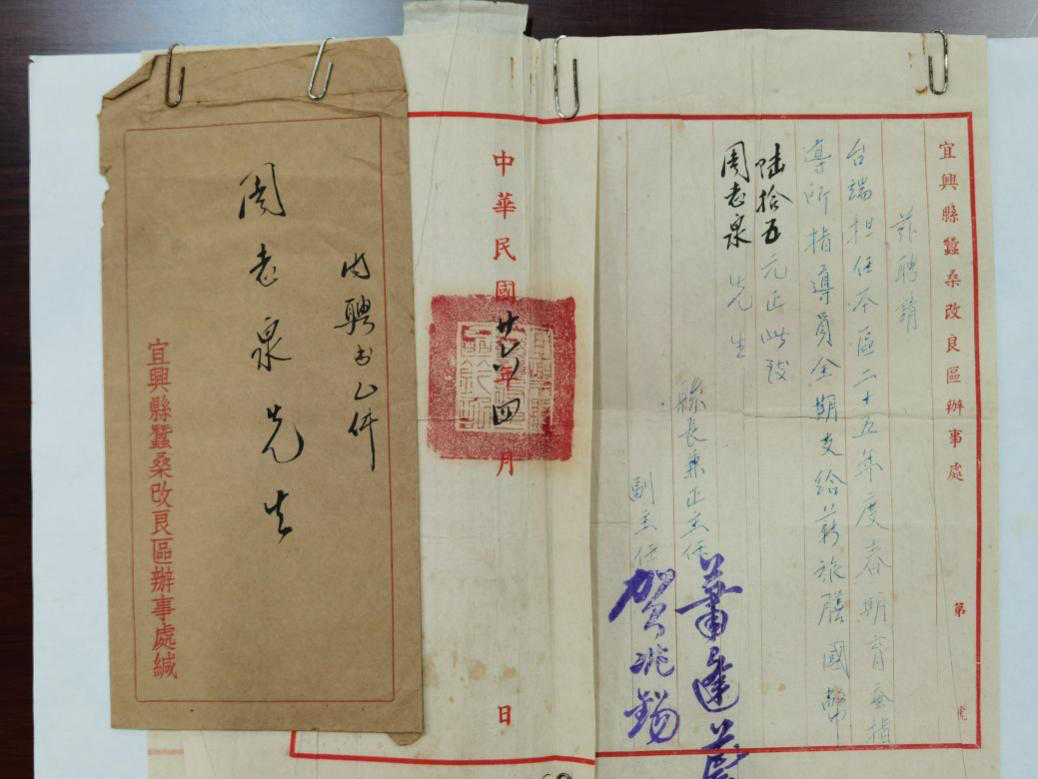 宜興縣蠶桑改良區辦事處 第 號
茲聘請
台端担任本區二十五年度春期育蚕指
導所指導員全期支給薪旅膳國幣
陸拾五元正此致
周志泉先生
縣長兼正主任
副主任賀兆錫
中華民國廿五年四月 日
内聘书乙件
周志泉先生
宜興縣蠶桑改良區辦事處緘